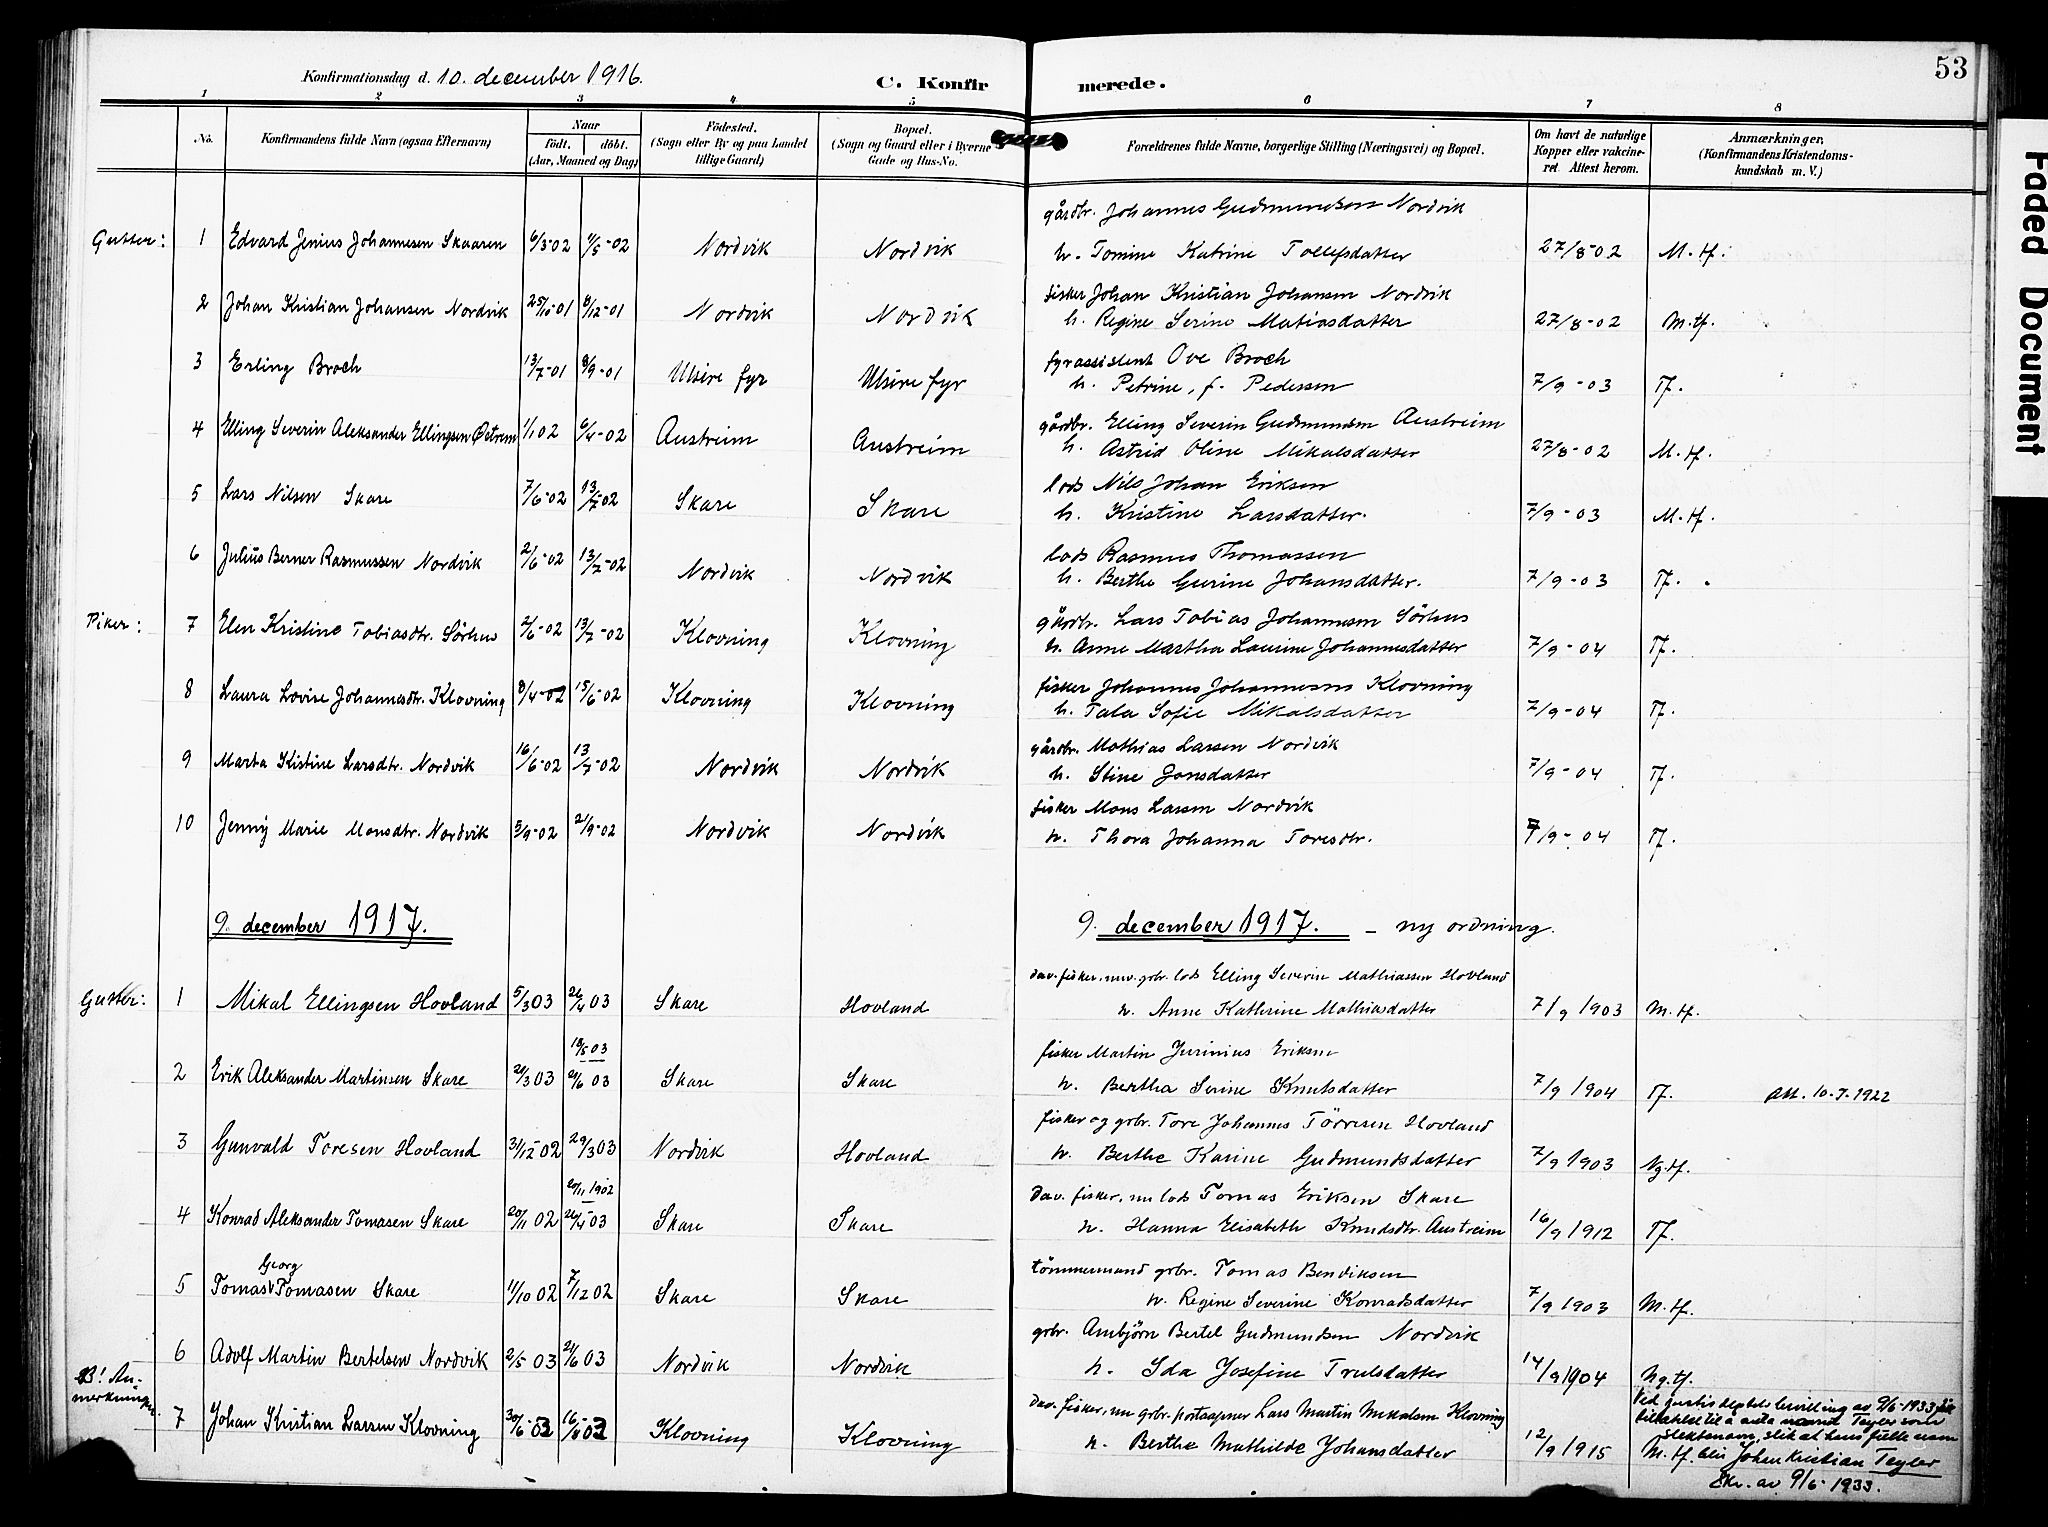 Konfirmationsdag d. 10. december 1916.
C. Konfirmerede.
53
1 2 3 4 5 6 7 8
No. Konfirmandens fulde Navn (ogsaa Efternavn) Naar födt. döbt. (Aar, Maaned og Dag) Födested. (Sogn eller By og paa Landet tillige Gaard) Bopæl. (Sogn og Gaard eller i Byerne Gade og Hus-No. Forældrenes fulde Navne, borgerlige Stilling (Næringsvei) og Bopæl. Om havt de naturlige Kopper eller vakcineret. Attest herom. Anmærkninger, (Konfirmandens Kristendomskundskab m. V.)
gårdbr. Johannes Gudmundsen Nordvik
Gutter: 1 Edvard Jenius Johannesen Skaaren 6/3-02 4/5-02 Nordvik Nordvik h. Tomine Katrine Tollefsdatter 27/8-02 M. tf.
fisker Johan Kristian Johansen Nordvik
2 Johan Kristian Johansen Nordvik 25/10-01 8/12-01 Nordvik Nordvik h. Regine Serine Matiasdatter 27/8-02 M. tf.
fyrassistent Ove Broch
3 Erling Broch 13/7-01 8/9-01 Utsire fyr Utsire fyr h. Petrine, f. Pedersen 7/9-03 Tf.
gårdbr. Elling Severin Gudmundsen Austreim
4 Elling Severin Aleksander Ellingsen Østrem 1/1 02 6/4-02 Austreim Austreim h. Astrid Oline Mikalsdatter 27/8-02 M. tf.
lods Nils Johan Eriksen
5 Lars Nilsen Skare 7/6-02 13/7-02 Skare Skare h. Kristine Larsdatter. 7/9-03 M. tf.
lods Rasmus Thomassen
6 Julius Berner Rasmussen Nordvik 2/6-02 13/7-02 Nordvik Nordvik h. Berthe Gurine Johansdatter. 7/9-03 Tf.
gårdbr. Lars Tobias Johannesen Sörhus
Piker: 7 Elen Kristine Tobiasdtr. Sörhus 2/6-02 13/7-02 Klovning Klovning h. Anne Martha Laurine Johannesdatter 7/9-04 Tf.
fisker Johannes Johannesen Klovning
8 Laura Lovise Johannesdtr. Klovning 8/4-02 15/6-02 Klovning Klovning h. Tala Sofie Mikalsdatter 7/9-04 Tf.
gårdbr. Mathias Larsen Nordvik
9 Marta Kistine Larsdtr. Nordvik 16/6-02 13/7-02 Nordvik Nordvik h. Stine Jonsdatter 7/9-04 Tf.
fisker Mons Larsen Nordvik
10 Jenny Marie Monsdtr. Nordvik 5/9-02 21/9-02 Nordvik Nordvik h. Thora Johanna Toresdtr. 7/9-04 Tf.
9. december 1917. 9. december 1917. - ny ordning.
dav. fisker, nuv. grbr. lods Elling Severin Mathiassen Hovland
Gutter: 1 Mikal Ellingsen Hovland 5/3 03 26/4 03 Skare Hovland h. Anne Kathrine Mathiasdatter 7/9 1903 M. tf.
fisker Martin Jurinius Eriksen
2 Erik Aleksander Martinsen Skare 03 03 Skare Skare h. Bertha Serine Knutsdatter 7/9 1904 Tf. Att. 10.7.1922
fisker og grbr. Tore Johannes Törresen Hovland
3 Gunvald Toresen Hovland 31/12 02 29/3 03 Nordvik Hovland h. Berthe Karine Gudmundsdatter 7/9 1903 Ng. tf.
20/11 1902 dav. fisker, nu lods Tomas Eriksen Skare
4 Konrad Aleksander Tomasen Skare 20/11 02 26/4-03 Skare Skare h. Hanna Elisabeth Knudsdtr. Austreim 16/9 1912 Tf.
Georg tömmermand grbr. Tomas Bendiksen
5 Tomas Tomasen Skare 11/10 02 7/12 02 Skare Skare h. Regine Severine Konradsdatter 7/9 1903 M. tf.
grbr. Ambjörn Bertel Gudmundsen Nordvik
6 Adolf Martin Bertelsen Nordvik 2/5 03 21/6 03 Nordvik Nordvik h. Ida Josefine Trulsdatter 14/9 1904 Ng. tf.
B! Anmerkningen. dav. fisker, nu grbr. Lars Martin Mikalsen Klovning Ved justisdeptets bevilling av 9/6-1933
tillatelse til å anta navnet Tegler som
slektsnavn, slik at hans fulle navn
7 Johan Kristian Larsen Klovning 30/6-03 Klovning Klovning h. Berthe Mathilde Johansdatter 12/9 1915 M. tf. blir Johan Kristian Tegler
Skr. av 9/6-1933.
Faded Document